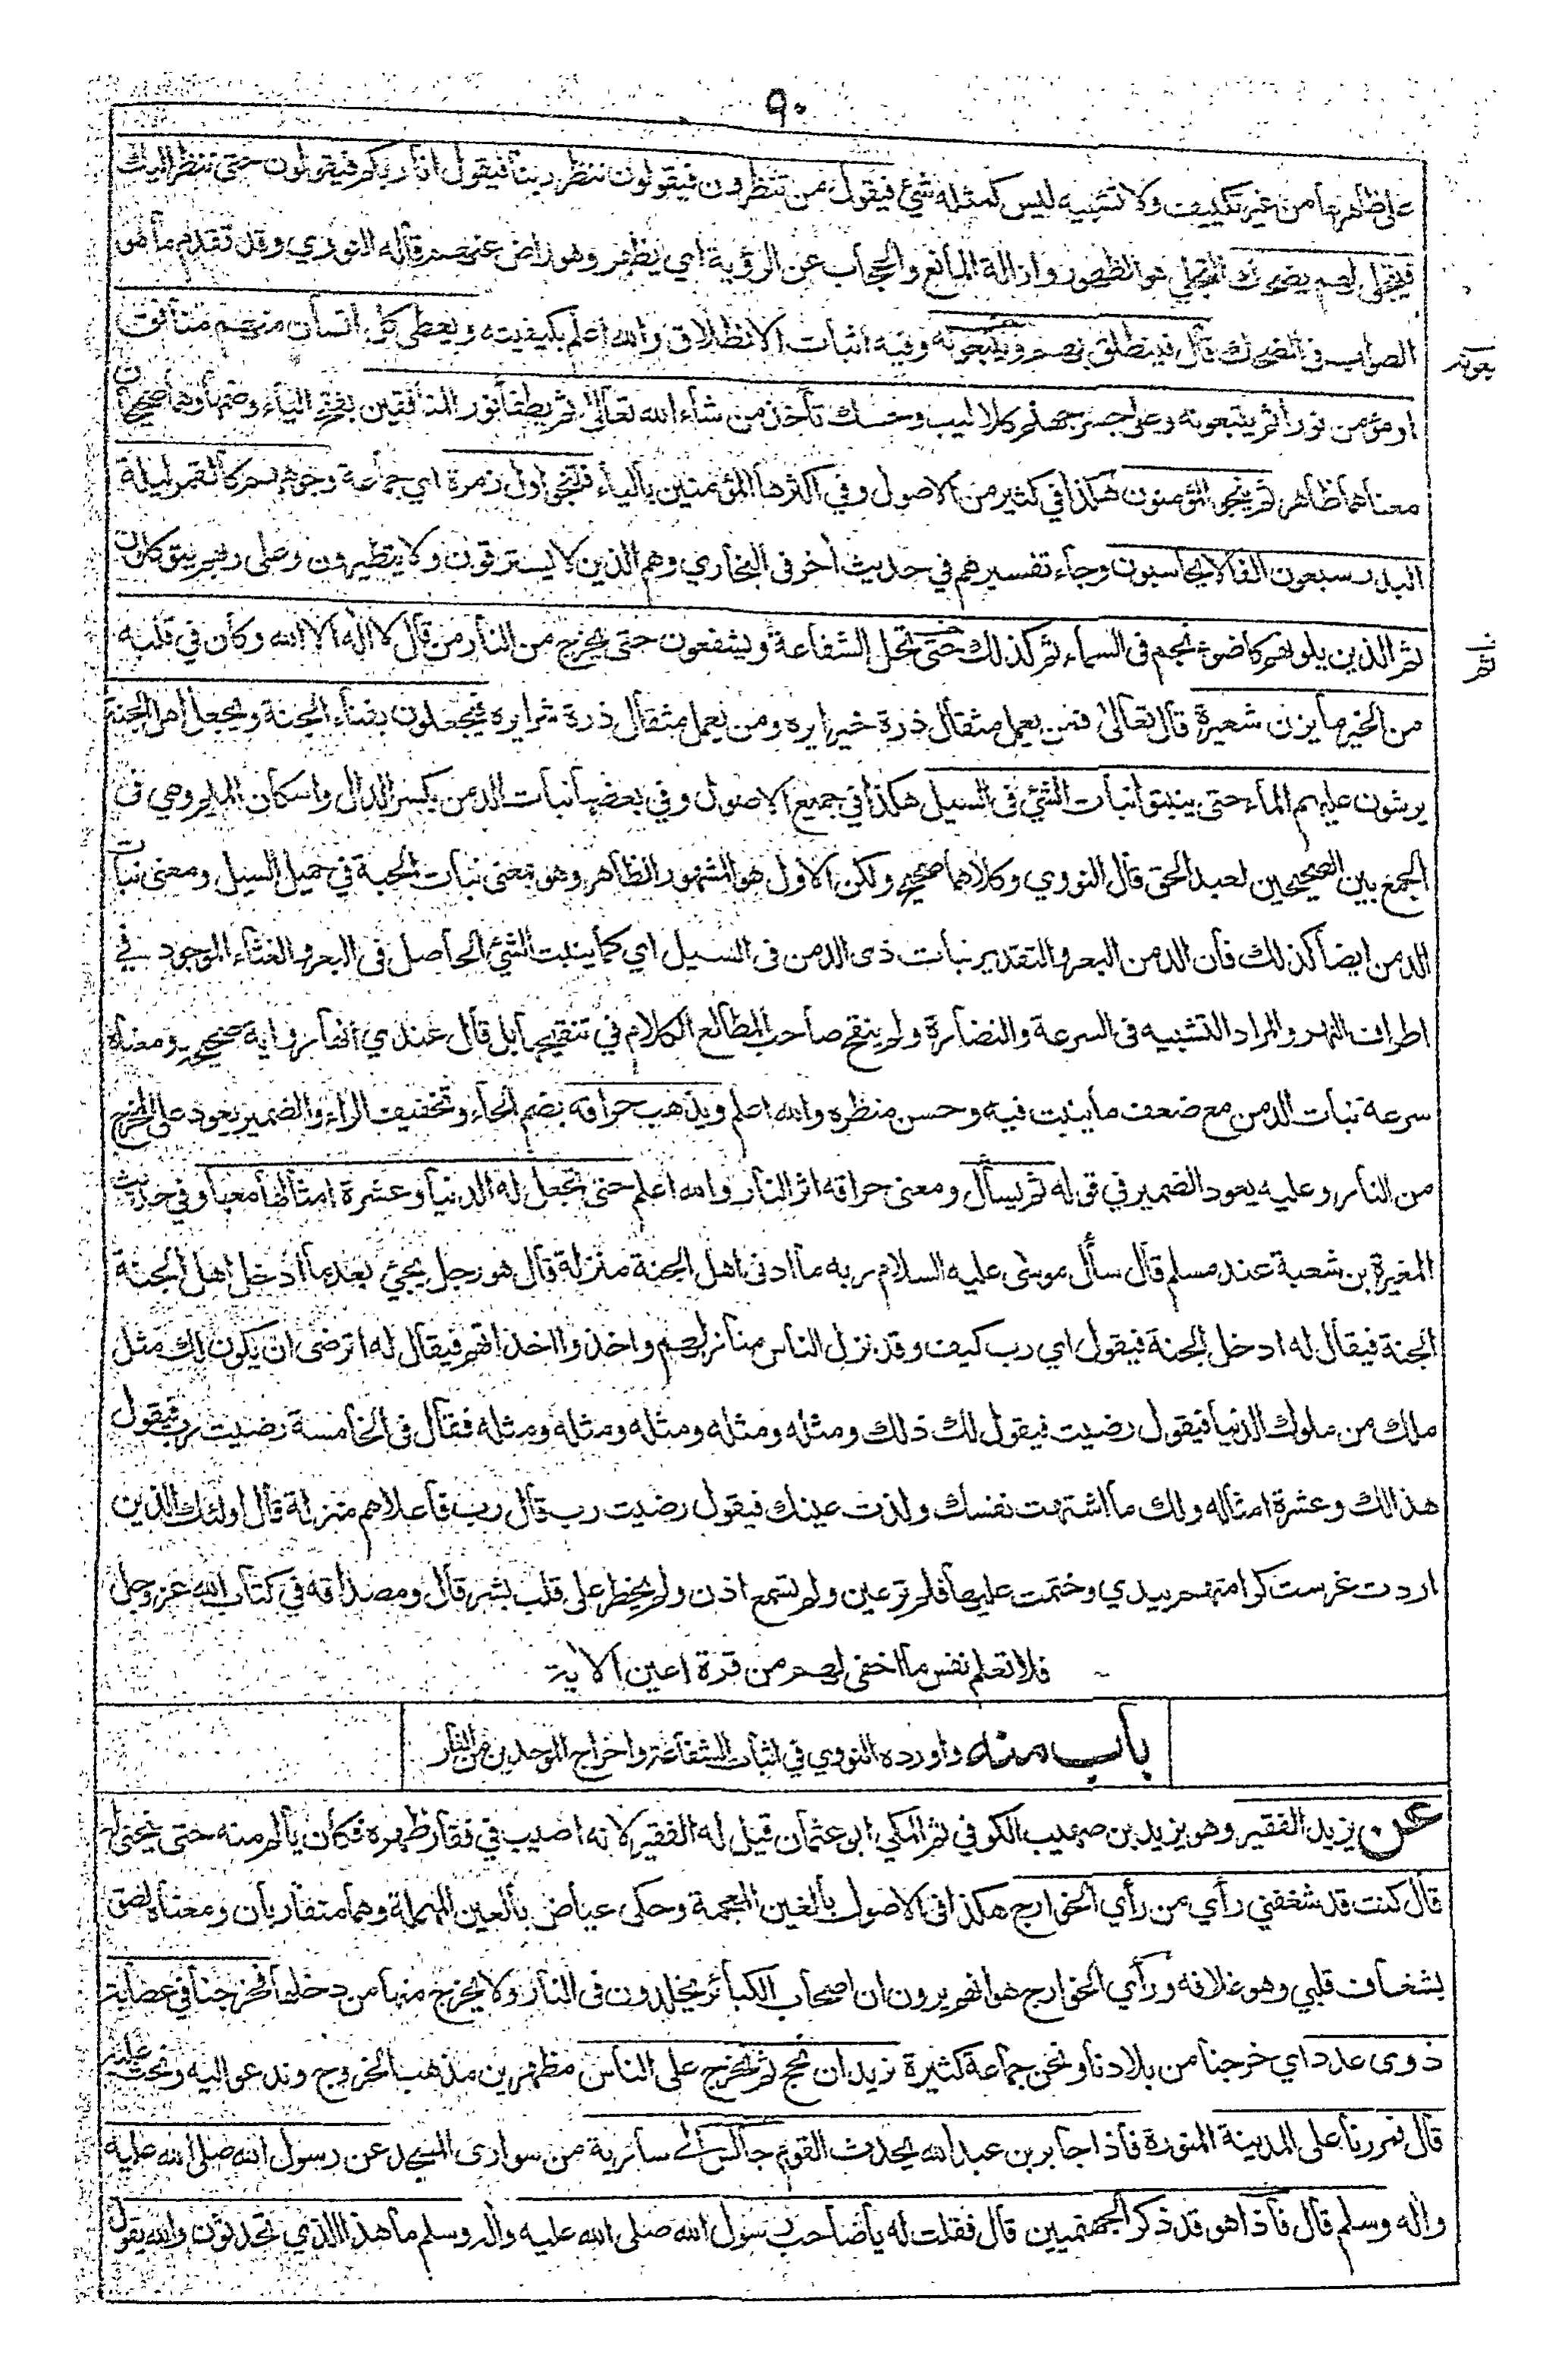 ٩٠
على ظاهرها من غير تكييف ولا تشبيه ليس كمثله شئ فيقول من تنظرون فيقولون ننظر ربنا فيقول انا ربكم فيقولون حتى ننظر اليك
فيتجلى لهم يضحك التجلي هو الظهور وازالة المانع والحجاب عن الرؤية اي يظهر وهو راض عنهم قاله النووي وقد تقدم ما هو
الصواب في الضحك قال فينطلق بهم ويتبعونه وفيه اثبات الانطلاق والله اعلم بكيفيته ويعطى كل انسان منهم منافق
او مؤمن نورا ثم يتبعونه وعلى جسر جهنم كلاليب وحسك تأخذ من شاء الله تعالى ثم يطفأ نور المنافقين بفتح الياء وضمها وهما صحيحان
معناهما ظاهر ثم ينجو المؤمنون هكذا في كثير من الاصول وفي اكثرها المؤمنين بالياء فتنجو اول زمرة اي جماعة وجوههم كالقمر ليلة
البدر سبعون الفا لا يحاسبون وجاء تفسيرهم في حديث اخر في البخاري وهم الذين لا يسترقون ولا يتطيرون وعلى ربهم يتوكلون
ثم الذين يلونهم كاضوء نجم في السماء ثم كذلك حتى تحل الشفاعة ويشفعون حتى يخرج من النار من قال لا اله الا الله وكان في قلبه
من الخير ما يزن شعيرة قال تعالى فمن يعمل مثقال ذرة خيرا يره ومن يعمل مثقال ذرة شرا يره فيجعلون بفناء الجنة ويجعل اهل الجنة
يرشون عليهم الماء حتى ينبتوا نبات الشئ في السيل هكذا في جميع الاصول وفي بعضها نبات الدمن بكسر الدال واسكان الميم وهي في
الجمع بين الصحيحين لعبد الحق قال النووي وكلاهما صحيح ولكن الاول هو المشهور الظاهر وهو بمعنى نبات الحبة في حميل السيل ومعنى نبات
الدمن ايضا كذلك فان الدمن البعر والتقدير نبات ذى الدمن في السيل اي كما ينبت الشئ الحاصل في البعر والغثاء الموجود في
اطراف النهر والمراد التشبيه في السرعة والنضارة ولم ينقح صاحب المطالع الكلام في تنقيحها بل قال عندي انها رواية صحيحة ومعناه
سرعة نبات الدمن مع ضعف ما ينبت فيه وحسن منظره والله اعلم ويذهب حراقه بضم الحاء وتخفيف الراء والضمير يعود على المخرج
من النار وعليه يعود الضمير في قوله ثم يسأل ومعنى حراقه اثر النار والله اعلم حتى تجعل له الدنيا وعشرة امثالها معها وفي حديث
المغيرة بن شعبة عند مسلم قال سأل موسى عليه السلام ربه ما ادنى اهل الجنة منزلة قال هو رجل يجئ بعد ما ادخل اهل الجنة
الجنة فيقال له ادخل الجنة فيقول اي رب كيف وقد نزل الناس منازلهم واخذوا اخذاتهم فيقال له اترضى ان يكون لك مثل
ملك من ملوك الدنيا فيقول رضيت فيقول لك ذلك ومثله ومثله ومثله ومثله ومثله فقال في الخامسة رضيت رب فيقول
هذا لك وعشرة امثاله ولك ما اشتهت نفسك ولذت عينك فيقول رضيت رب قال رب فاعلاهم منزلة قال اولئك الذين
اردت غرست كرامتهم بيدي وختمت عليها فلم تر عين ولم تسمع اذن ولم يخطر على قلب بشر قال ومصداقه في كتاب الله عز وجل
فلا تعلم نفس ما اخفي لهم من قرة اعين الاية
باب منه واورده النووي في اثبات الشفاعة واخراج الموحدين من النار
عن يزيد الفقير وهو يزيد بن صهيب الكوفي ثم المكي ابو عثمان قيل له الفقير لانه اصيب في فقار ظهره فكان يألم منه حتى ينحني له
قال كنت قد شغفني رأي من رأي الخوارج هكذا في الاصول بالغين المعجمة وحكى عياض بالعين المهملة وهما متقاربان ومعناه لصق
بشغاف قلبي وهو غلافه ورأي الخوارج هو انهم يرون ان اصحاب الكبائر يخلدون في النار ولا يخرج منها من دخلها فخرجنا في عصابة
ذوى عدد اي خرجنا من بلادنا ونحن جماعة كثيرة نريد ان نحج ثم نخرج على الناس مظهرين مذهب الخروج وندعو اليه ونحث عليه
قال فمررنا على المدينة المنورة فاذا جابر بن عبد الله يحدث القوم جالس الى سارية من سوارى المسجد عن رسول الله صلى الله عليه
واله وسلم قال فاذا هو قد ذكر الجهنميين قال فقلت له يا صاحب رسول الله صلى الله عليه واله وسلم ما هذا الذي تحدثون والله يقول